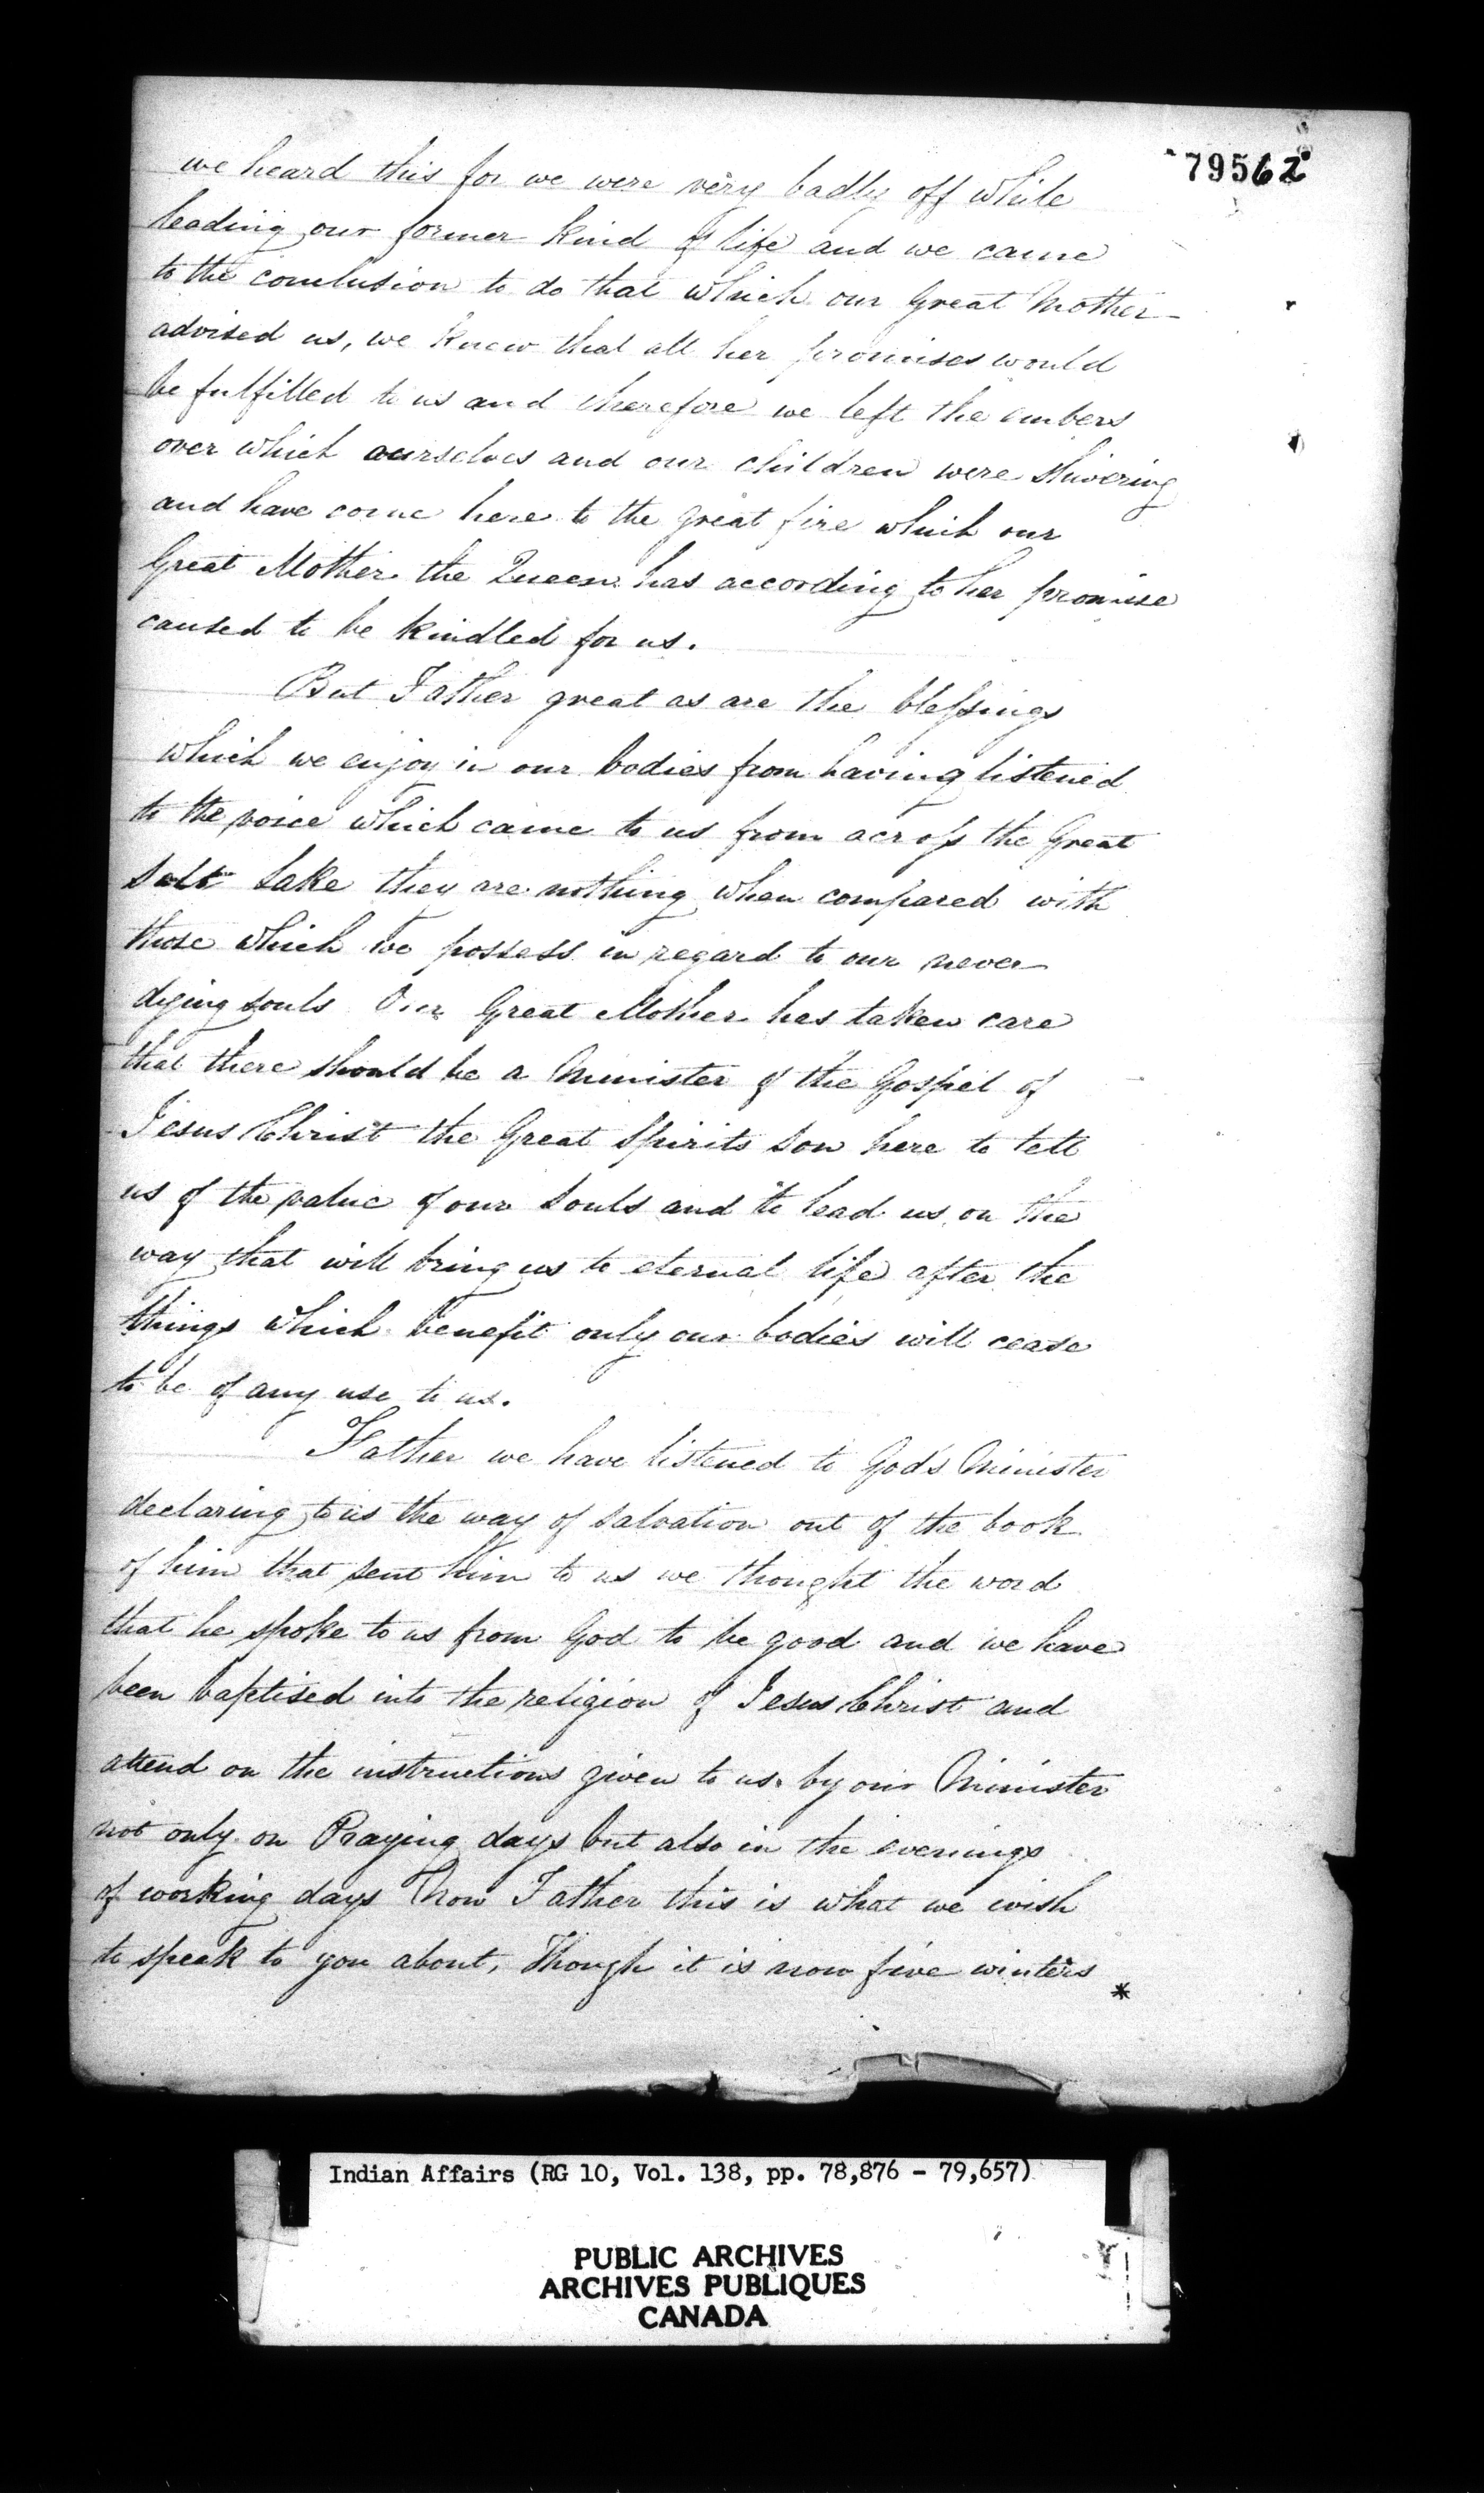 79562
we heard this for we were very badly off while
leading our former kind of life and we came
to the conclusion to do that which our Great Mother
advised us, we knew that all her promises would
be fulfilled to us and therefore we left the embers
over which ourselves and our children were shivering
and have come here to the great fire which our
Great Mother the Queen has according to her promise
caused to be kindled for us.
But Father great as are the blessings
which we enjoy in our bodies from having listened
to the voice which came to us from across the Great
Salt Lake they are nothing when compared with
those which we possess in regard to our never
dying souls Our Great Mother has taken care
that there should be a Minister of the Gospel of
Jesus Christ the Great Spirits Son here to tell
us of the value of our Souls and to lead us on the
way that will bring us to eternal life after the
things which benefit only our bodies will cease
to be of any use to us.
Father we have listened to God's Minister
declaring to us the way of salvation out of the book
of him that sent him to us we thought the word
that he spoke to us from God to be good and we have
been baptised into the religion of Jesus Christ and
attend on the instructions given to us by our Minister
not only on Praying days but also in the evenings
of working days Now Father this is what we wish
to speak to you about, Though it is now five winters *
Indian Affairs (RG 10, Vol. 138, pp. 78,876 - 79,657)
PUBLIC ARCHIVES
ARCHIVES PUBLIQUES
CANADA